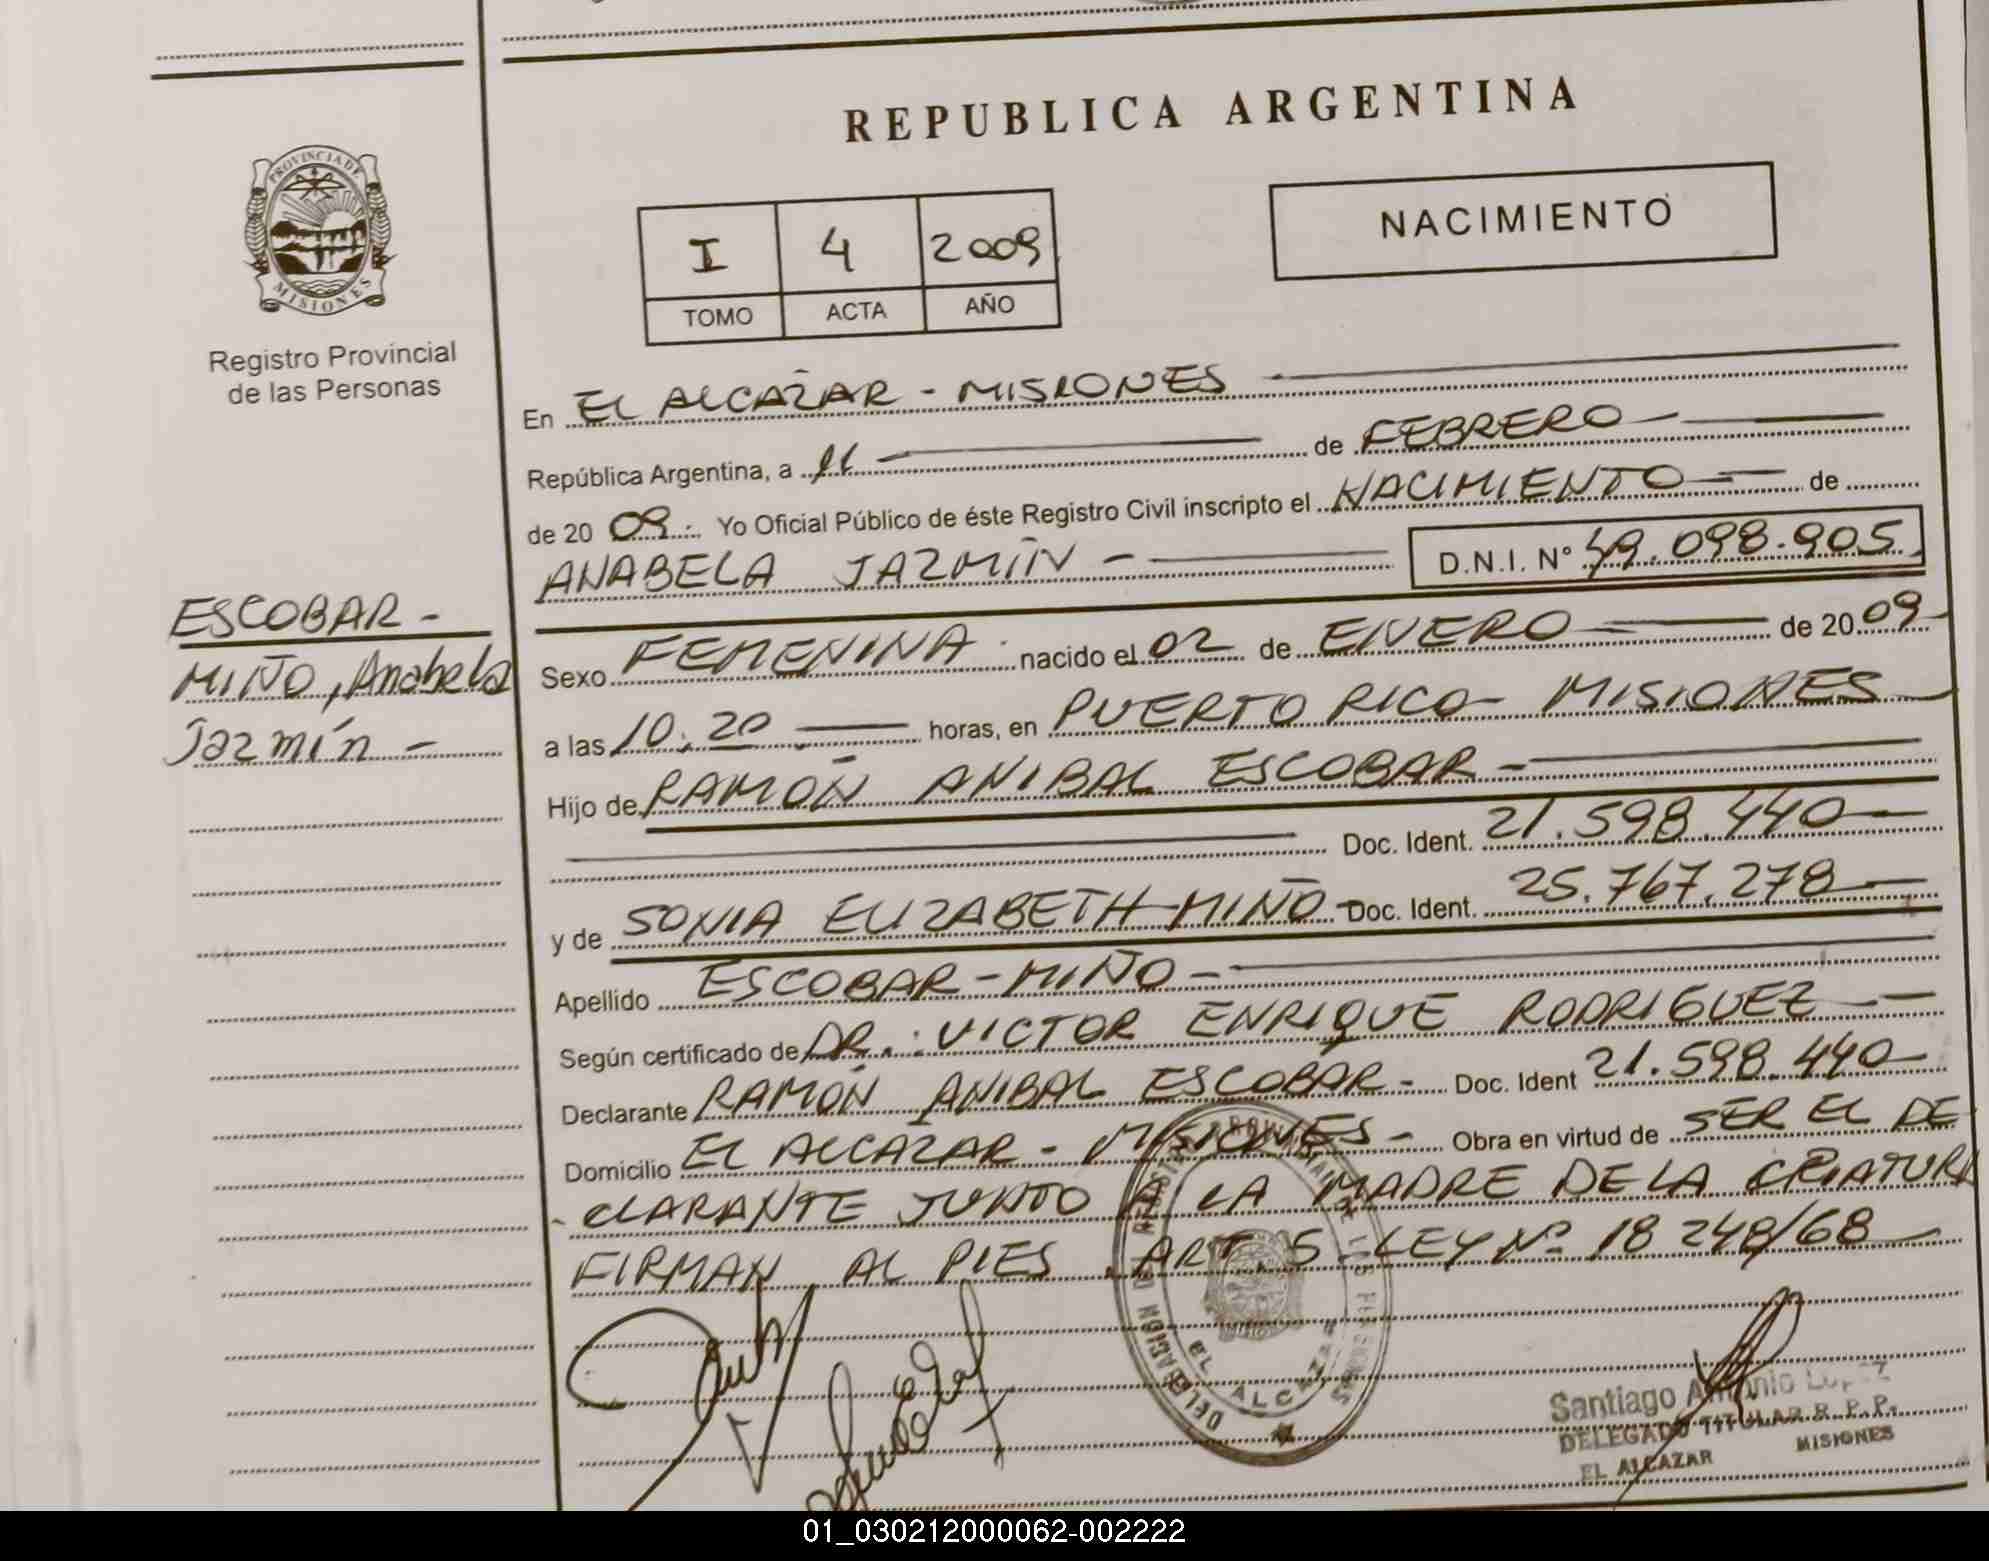 REPUBLICA ARGENTINA
PROVINCIA DE
MISIONES
Registro Provincial
de las Personas
I 4 2009
TOMO ACTA AÑO
NACIMIENTO
En EL ALCAZAR - MISIONES
República Argentina, a 11 de FEBRERO
de 20 09. Yo Oficial Público de éste Registro Civil inscripto el NACIMIENTO de
ANABELA JAZMÍN - D.N.I. Nº 49.098.905
ESCOBAR -
MIÑO, Anabela
Jazmín -
Sexo FEMENINA nacido el 02 de ENERO de 20 09
a las 10.20 horas, en PUERTO RICO - MISIONES
Hijo de RAMÓN ANIBAL ESCOBAR -
Doc. Ident. 21.598.440
y de SONIA ELIZABETH MIÑO - Doc. Ident. 25.767.278
Apellido ESCOBAR - MIÑO -
Según certificado de DR.: VICTOR ENRIQUE RODRIGUEZ
Declarante RAMÓN ANIBAL ESCOBAR - Doc. Ident 21.598.440
Domicilio EL ALCAZAR - MISIONES - Obra en virtud de SER EL DE
- CLARANTE JUNTO A LA MADRE DE LA CRIATURA
FIRMAN AL PIES. ART. 5 - LEY Nº 18 248/68
EL ALCAZAR
Santiago Antonio Lopez
DELEGADO TITULAR R. P. P.
EL ALCAZAR MISIONES
01_030212000062-002222